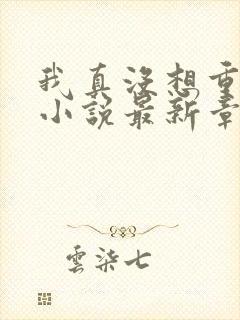 我真没想重
小说最新章
云染七